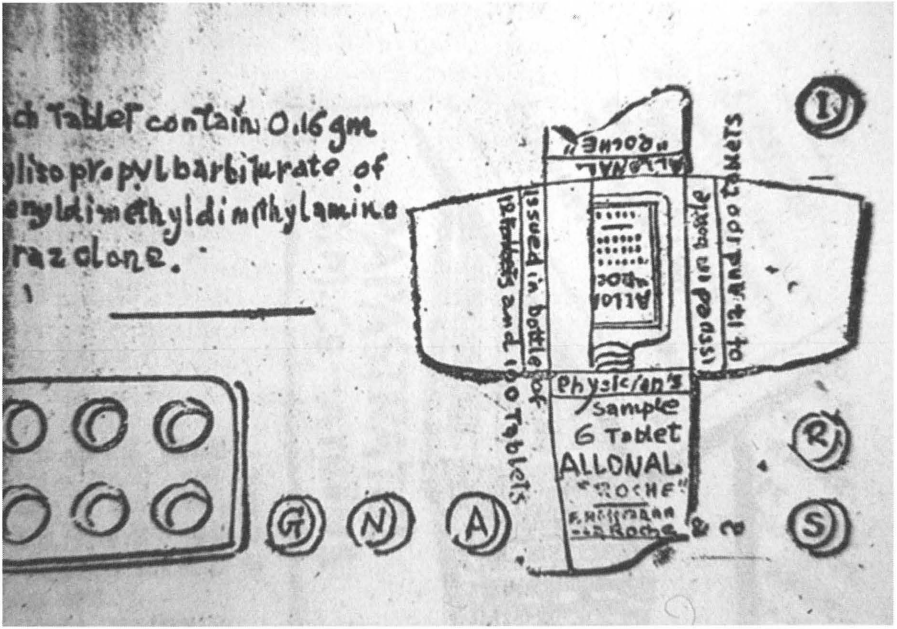 ch Tablet contain 0.16 gm
ylisopropylbarbiturate of
enyldimethyldimthylamino
raz clone.
I
"ROCHE"
ALLONAL
issued in bottle of
12 Tablets and 100 Tablets
ALLO
"ROC
issued in bottle
of 12 and 100 tablets
Physician's
Sample
6 Tablet
ALLONAL
"ROCHE"
F. Hoffmann
La Roche
R
G
N
A
S